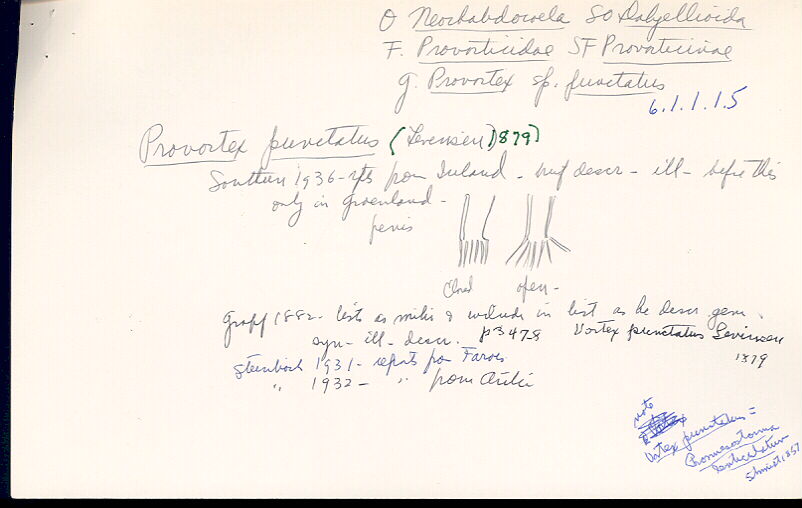 O Neorhabdocoela SO Dalyellioida
F. Provorticidae SF Provorticinae
g. Provortex sp. punctatus
6.1.1.1.5
Provortex punctatus (Levinsen) 1879)
Southern 1936 - rpts from Ireland - brief descr - ill - before this
only in Greenland -
penis
Closed open -
Graff 1882 - lists as & include in list as he descr. genu.
syn - ill - descr. p 347-8 Vortex punctatus Levinsen
1879
Steinbock 1931 - reports from Faroes
" 1932 - " from Arctic
note
Vortex punctatus =
Promesostoma
lenticulatum
Schmidt 1857